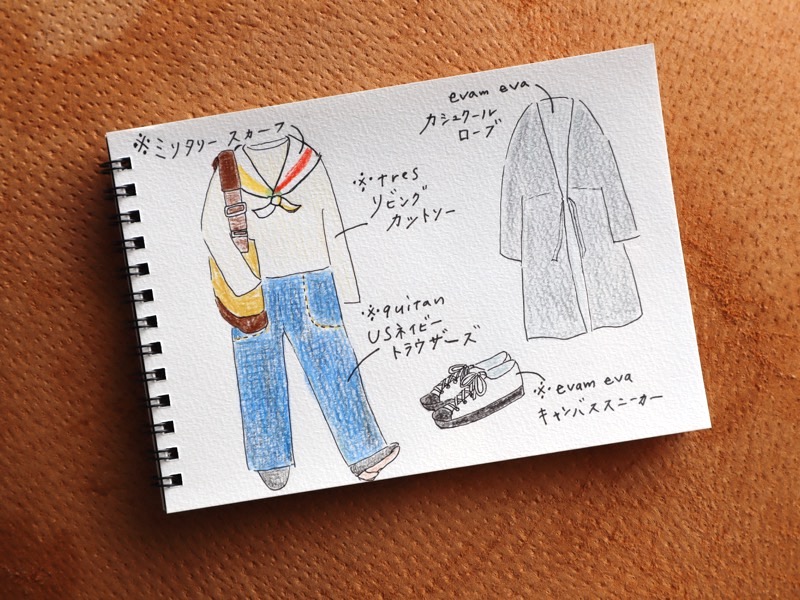 ※ミリタリー スカーフ
※tres
リビング
カットソー
※quitan
USネイビー
トラウザーズ
evam eva
カシュクール
ローブ
※evam eva
キャンバススニーカー